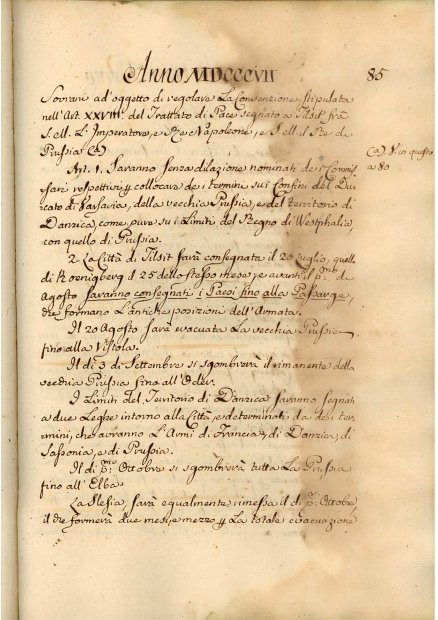 Anno MDCCCVII
85
Sovrani ad'oggetto di regolare La Convenzione stipulata
nell'Art. XXVIII. del Trattato di Pace segnato a Tilsit frà
S. ell. L'Imperatore, e Rè Napoleone, e S. ell. il Rè di
Prussia (a)
(a) V. in questo
a 80
Art. 1. Saranno senza dilazione nominati de' Commis-
sari respettivi p collocare dei termini sui Confini del Du-
cato di Varsavia, della vecchia Prussia, e del territorio di
Danzica, come pure su i Limiti del Regno di Westphalia,
con quello di Prussia.
2. La Città di Tilsit sarà consegnata il 20 Luglio, quella
di Koenigberg il 25 dello stesso mese, e avanti il pmo di
Agosto saranno consegnati i Paesi fino alla Passarge,
che formano L'antiche posizioni dell'Armata.
Il 20 Agosto sarà evacuata La vecchia Prussia
fino alla Vistola.
Il dì 5 di Settembre si sgombrerà il rimanente della
vecchia Prussia fino all'Oder.
I Limiti del Territorio di Danzica saranno segnati
a due Leghe intorno alla Città, e determinati da dei ter-
mini, che avranno L'Armi di Francia, di Danzica, di
Sassonia, e di Prussia.
Il dì pmo Ottobre si sgombrerà tutta La Prussia
fino all'Elba.
La Slesia, sarà equalmente rimessa il dì pmo Ottobre,
il che formerà due mesi, e mezzo p La totale evacuazione